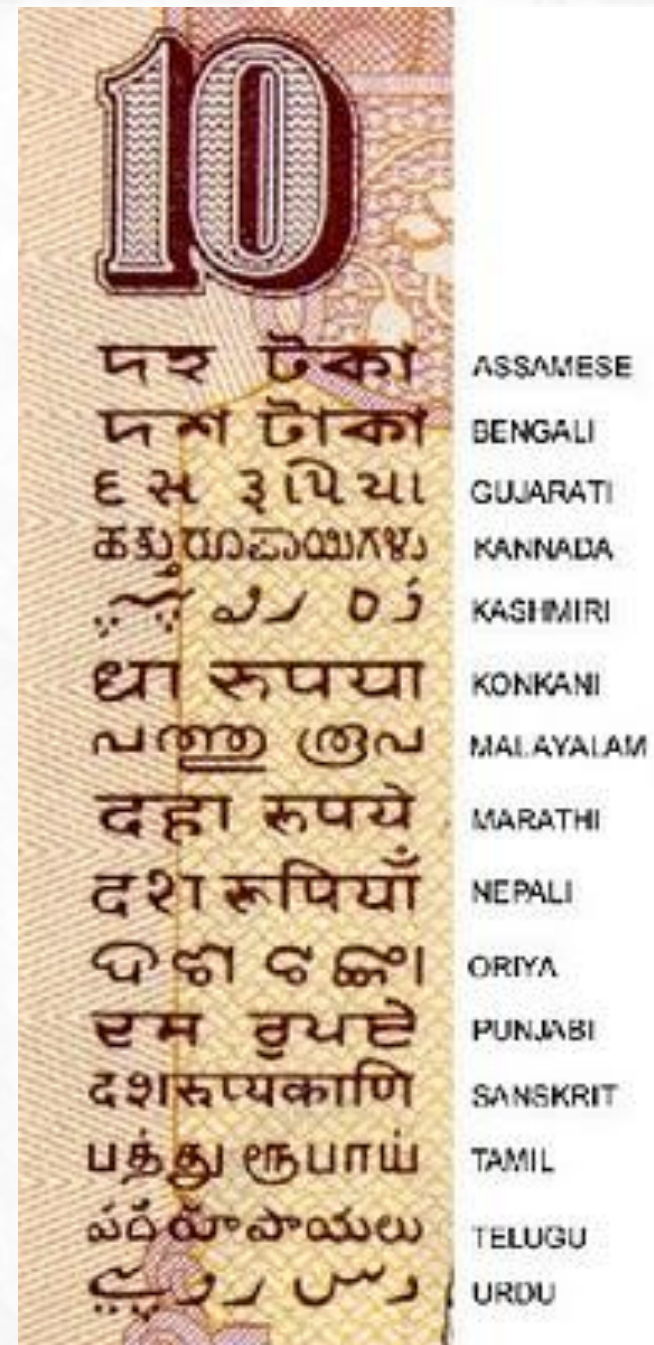 10
দহ টকা ASSAMESE
দশ টাকা BENGALI
દસ રૂપિયા GUJARATI
ಹತ್ತು ರೂಪಾಯಿಗಳು KANNADA
KASHMIRI
धा रुपया KONKANI
പത്തു രൂപ MALAYALAM
दहा रुपये MARATHI
दश रूपियाँ NEPALI
ଦଶ ଟଙ୍କା ORIYA
ਦਸ ਰੁਪਏ PUNJABI
दशरूप्यकाणि SANSKRIT
பத்து ரூபாய் TAMIL
పది రూపాయలు TELUGU
دس روپیے URDU